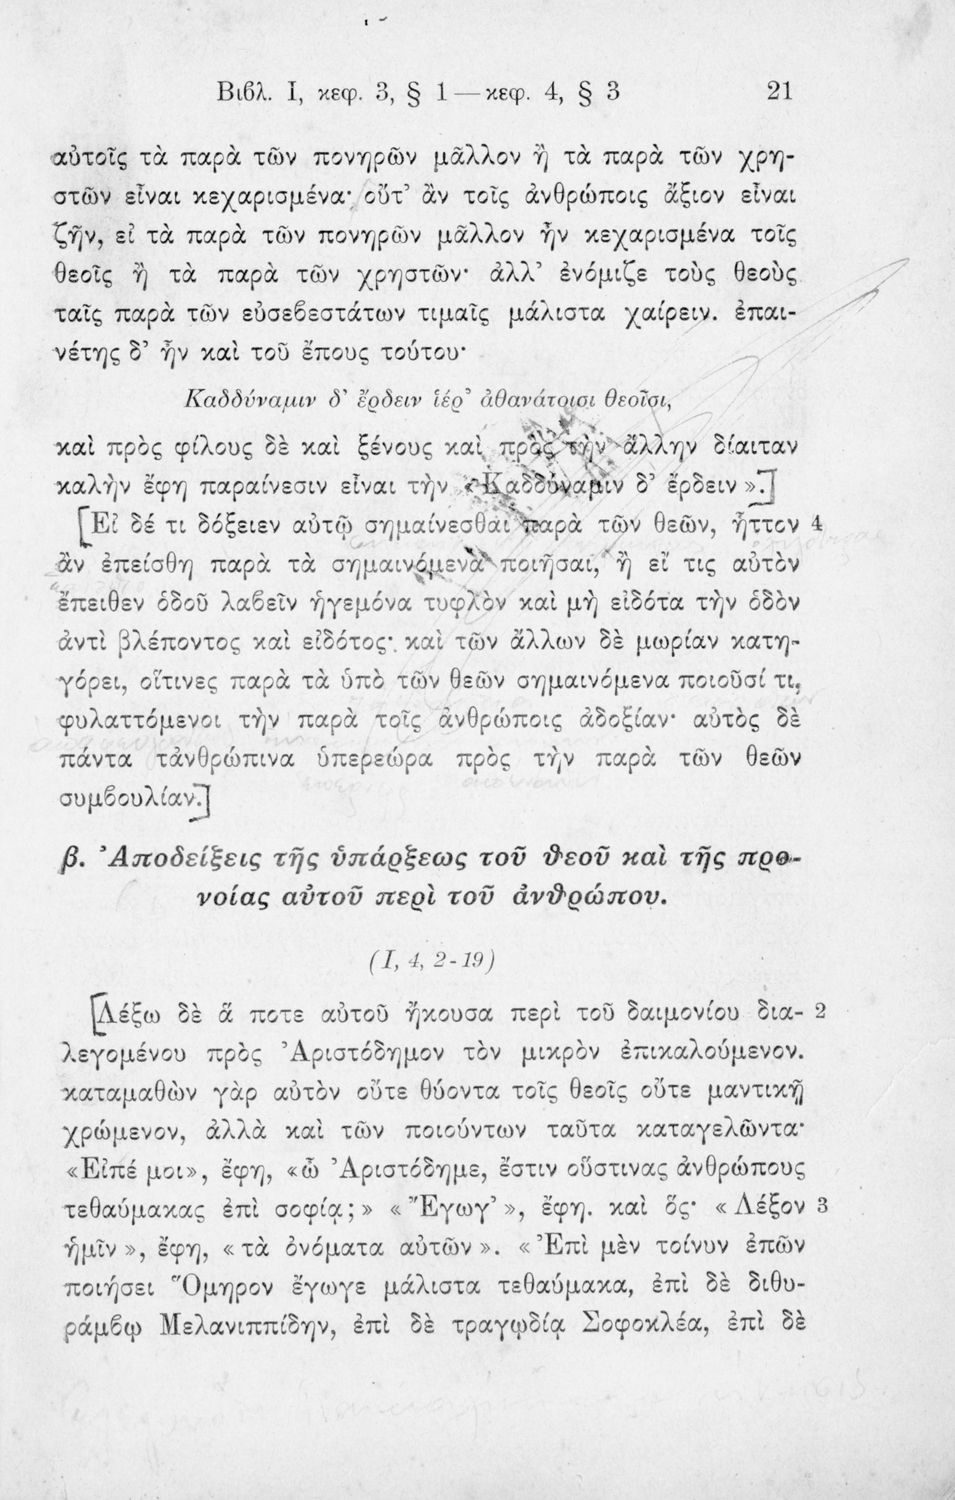 Βιβλ. Ι, κεφ. 3, § 1 — κεφ. 4, § 3 21
αὐτοῖς τὰ παρὰ τῶν πονηρῶν μᾶλλον ἢ τὰ παρὰ τῶν χρη-
στῶν εἶναι κεχαρισμένα· οὔτ’ ἂν τοῖς ἀνθρώποις ἄξιον εἶναι
ζῆν, εἰ τὰ παρὰ τῶν πονηρῶν μᾶλλον ἦν κεχαρισμένα τοῖς
θεοῖς ἢ τὰ παρὰ τῶν χρηστῶν· ἀλλ’ ἐνόμιζε τοὺς θεοὺς
ταῖς παρὰ τῶν εὐσεβεστάτων τιμαῖς μάλιστα χαίρειν. ἐπαι-
νέτης δ’ ἦν καὶ τοῦ ἔπους τούτου·
Καδδύναμιν δ’ ἔρδειν ἱέρ’ ἀθανάτοισι θεοῖσι,
καὶ πρὸς φίλους δὲ καὶ ξένους καὶ πρὸς τὴν ἄλλην δίαιταν
καλὴν ἔφη παραίνεσιν εἶναι τὴν «Καδδύναμιν δ’ ἔρδειν».]
[Εἰ δέ τι δόξειεν αὐτῷ σημαίνεσθαι παρὰ τῶν θεῶν, ἧττον 4
ἂν ἐπείσθη παρὰ τὰ σημαινόμενα ποιῆσαι, ἢ εἴ τις αὐτὸν
ἔπειθεν ὁδοῦ λαβεῖν ἡγεμόνα τυφλὸν καὶ μὴ εἰδότα τὴν ὁδὸν
ἀντὶ βλέποντος καὶ εἰδότος· καὶ τῶν ἄλλων δὲ μωρίαν κατη-
γόρει, οἵτινες παρὰ τὰ ὑπὸ τῶν θεῶν σημαινόμενα ποιοῦσί τι,
φυλαττόμενοι τὴν παρὰ τοῖς ἀνθρώποις ἀδοξίαν· αὐτὸς δὲ
πάντα τἀνθρώπινα ὑπερεώρα πρὸς τὴν παρὰ τῶν θεῶν
συμβουλίαν.]
β. Ἀποδείξεις τῆς ὑπάρξεως τοῦ θεοῦ καὶ τῆς προ-
νοίας αὐτοῦ περὶ τοῦ ἀνθρώπου.
(Ι, 4, 2-19)
[Λέξω δὲ ἅ ποτε αὐτοῦ ἤκουσα περὶ τοῦ δαιμονίου δια- 2
λεγομένου πρὸς Ἀριστόδημον τὸν μικρὸν ἐπικαλούμενον.
καταμαθὼν γὰρ αὐτὸν οὔτε θύοντα τοῖς θεοῖς οὔτε μαντικῇ
χρώμενον, ἀλλὰ καὶ τῶν ποιούντων ταῦτα καταγελῶντα·
«Εἰπέ μοι», ἔφη, «ὦ Ἀριστόδημε, ἔστιν οὕστινας ἀνθρώπους
τεθαύμακας ἐπὶ σοφίᾳ;» «Ἔγωγ’», ἔφη. καὶ ὅς· «Λέξον 3
ἡμῖν», ἔφη, «τὰ ὀνόματα αὐτῶν». «Ἐπὶ μὲν τοίνυν ἐπῶν
ποιήσει Ὅμηρον ἔγωγε μάλιστα τεθαύμακα, ἐπὶ δὲ διθυ-
ράμβῳ Μελανιππίδην, ἐπὶ δὲ τραγῳδίᾳ Σοφοκλέα, ἐπὶ δὲ